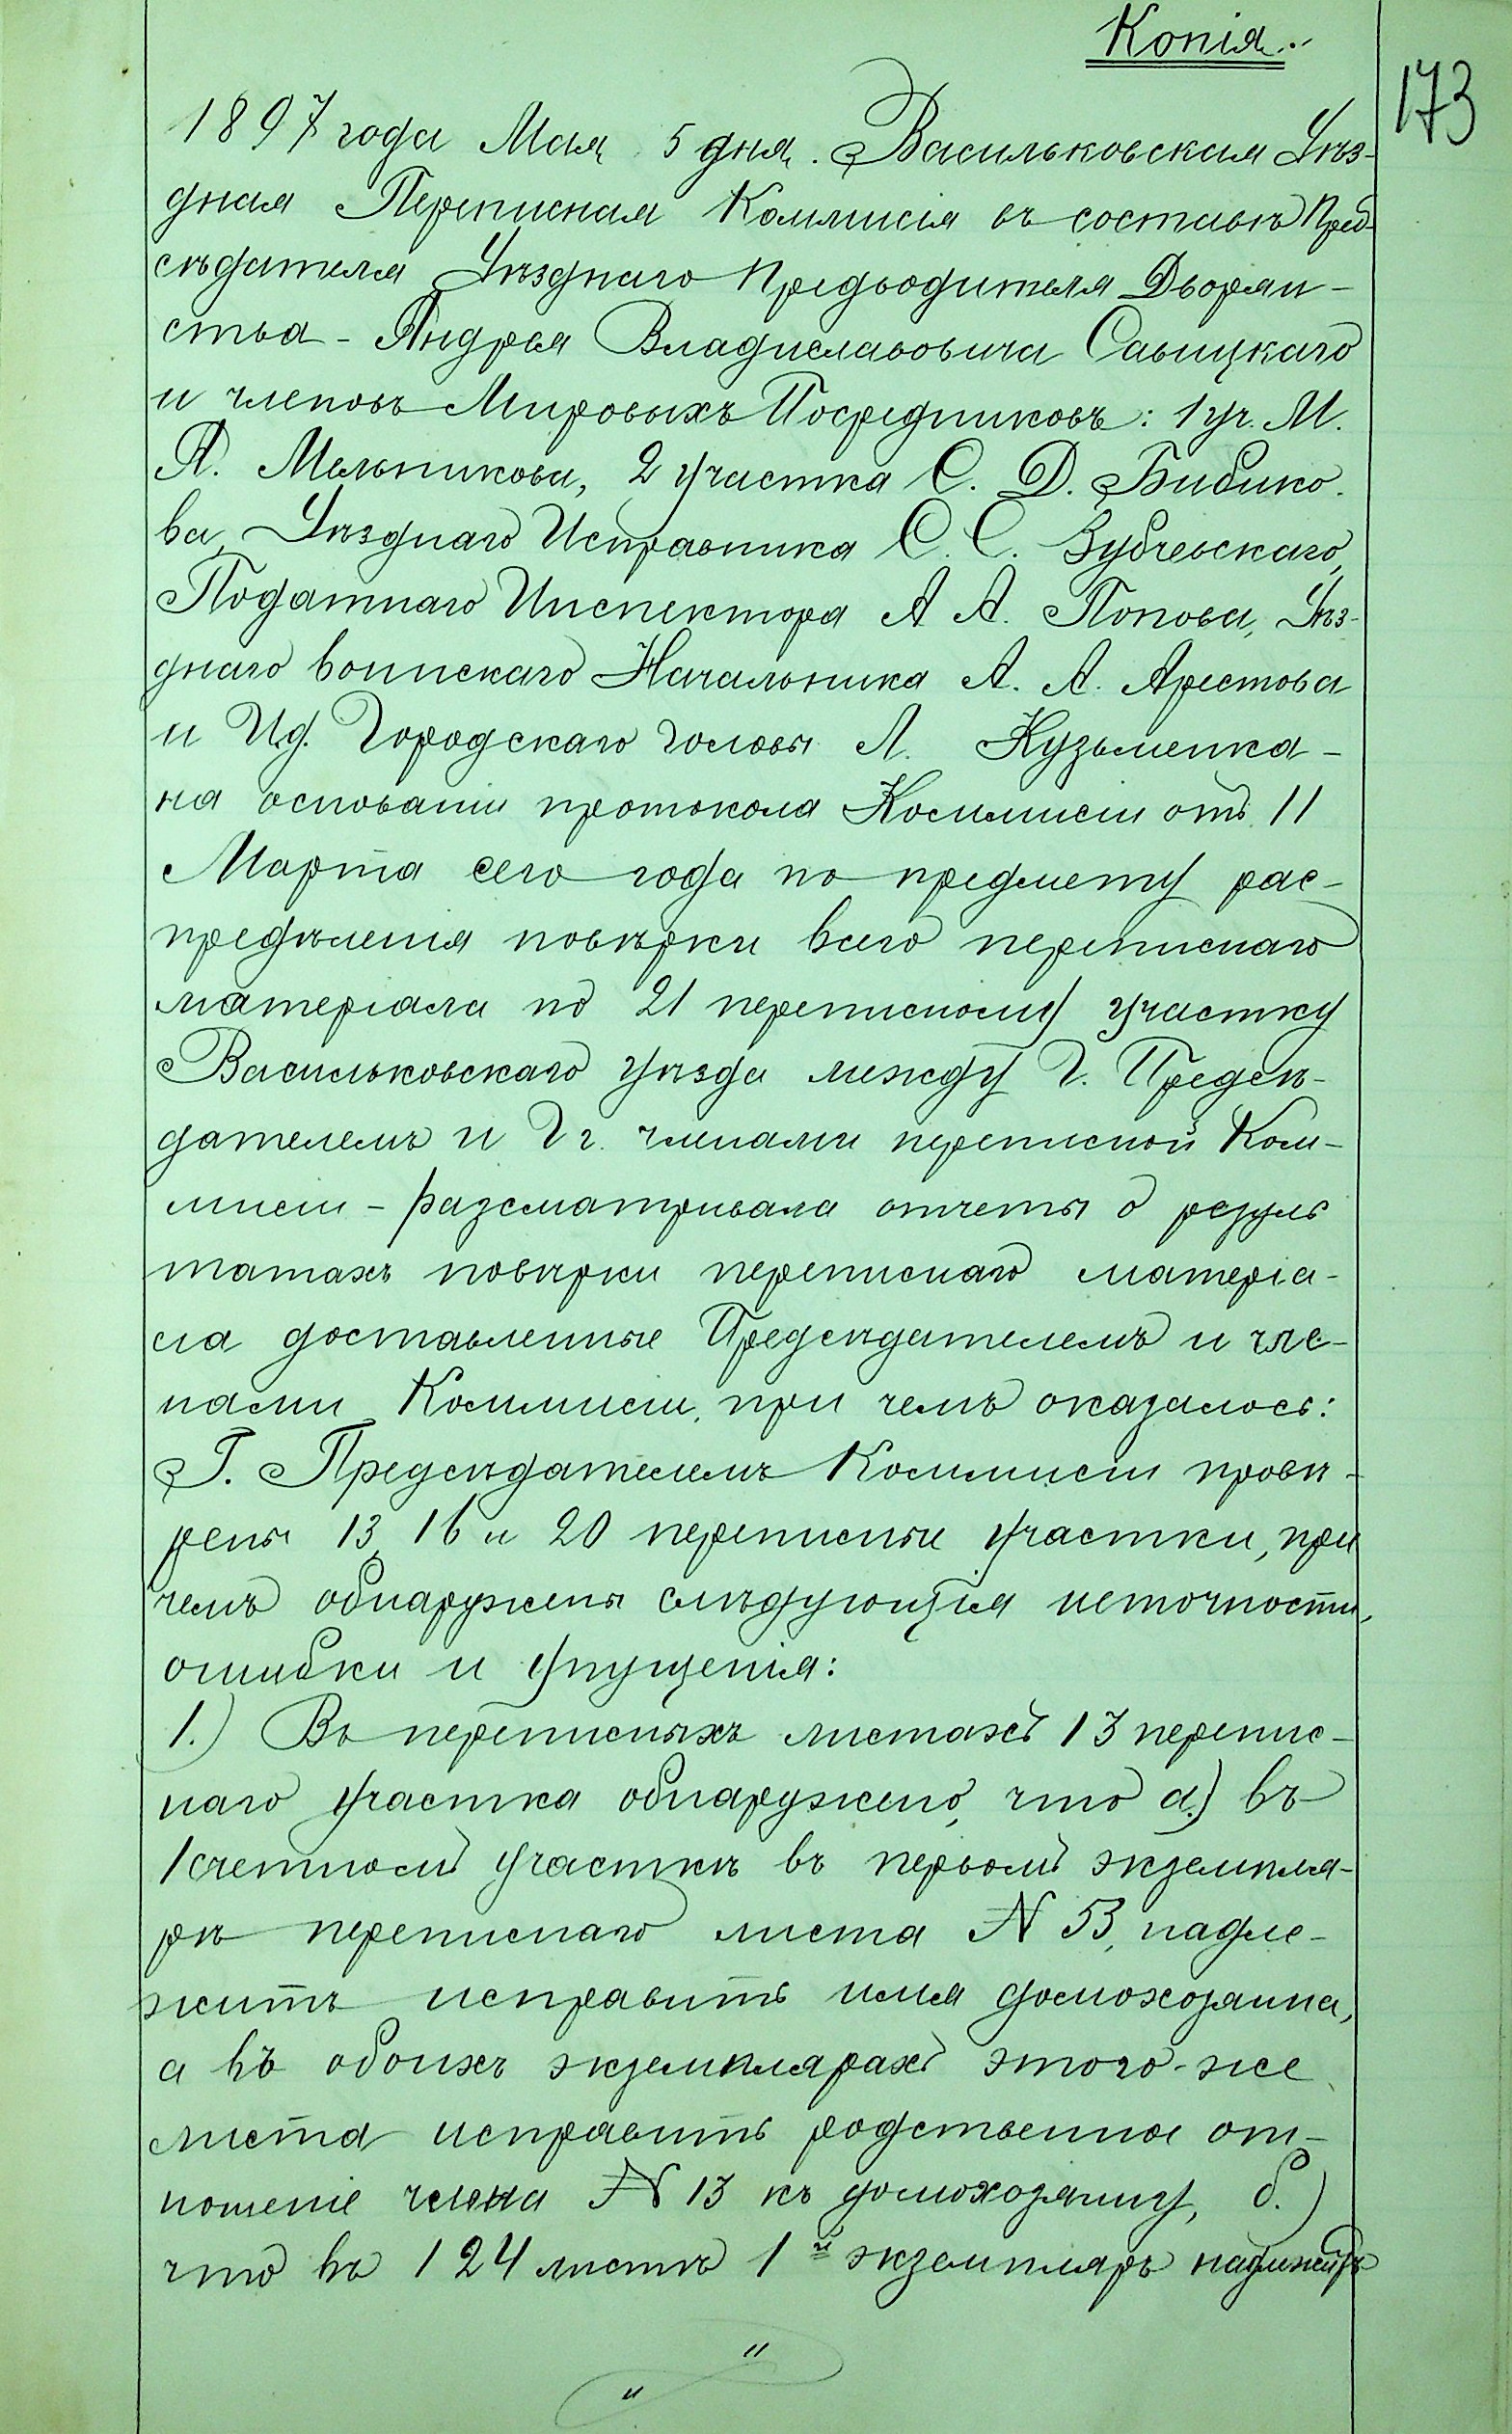 Копія.
173
1897 года Мая 5 дня. Васильковская Уѣз-
дная Переписная Коммисія въ составѣ Пред-
сѣдателя Уѣзднаго Предводителя Дворян-
ства - Андрея Владиславовича Савицкаго
и членовъ Мировыхъ Посредниковъ: 1 уч. М.
А. Мельникова, 2 участка С. Д. Бибико-
ва, Уѣзднаго Исправника С. С. Зубчевскаго,
Податнаго Инспектора А. А. Попова, Уѣз-
днаго воинскаго Начальника А. А. Арестова
и И.д. Городскаго Головы Л. Кузьменка -
на основаніи протокола Коммисіи отъ 11
Марта сего года по предмету рас-
предѣленія повѣрки всего переписнаго
матеріала по 21 переписному участку
Васильковскаго уѣзда между Г. Предсѣ-
дателемъ и Гг. членами переписной Ком-
мисіи - разсматривала отчеты о резуль
татахъ повѣрки переписнаго матеріа-
ла доставленные Предсѣдателемъ и чле-
нами Коммисіи, при чемъ оказалось:
Г. Предсѣдателемъ Коммисіи провѣ-
рены 13, 16 и 20 переписные участки, при
чемъ обнаружены слѣдующія неточности,
ошибки и упущенія:
1.) Въ переписныхъ листахъ 13 перепис-
наго участка обнаружено, что а.) въ
1 счетномъ участкѣ въ первомъ экземпля-
рѣ переписнаго листа N 53, надле-
житъ исправить имя домохозяина,
а въ обоихъ экземплярахъ этого-же
листа исправить родственное от-
ношеніе члена N 13 къ домохозяину, б.)
что въ 124 листѣ 1й экземпляръ надлежитъ